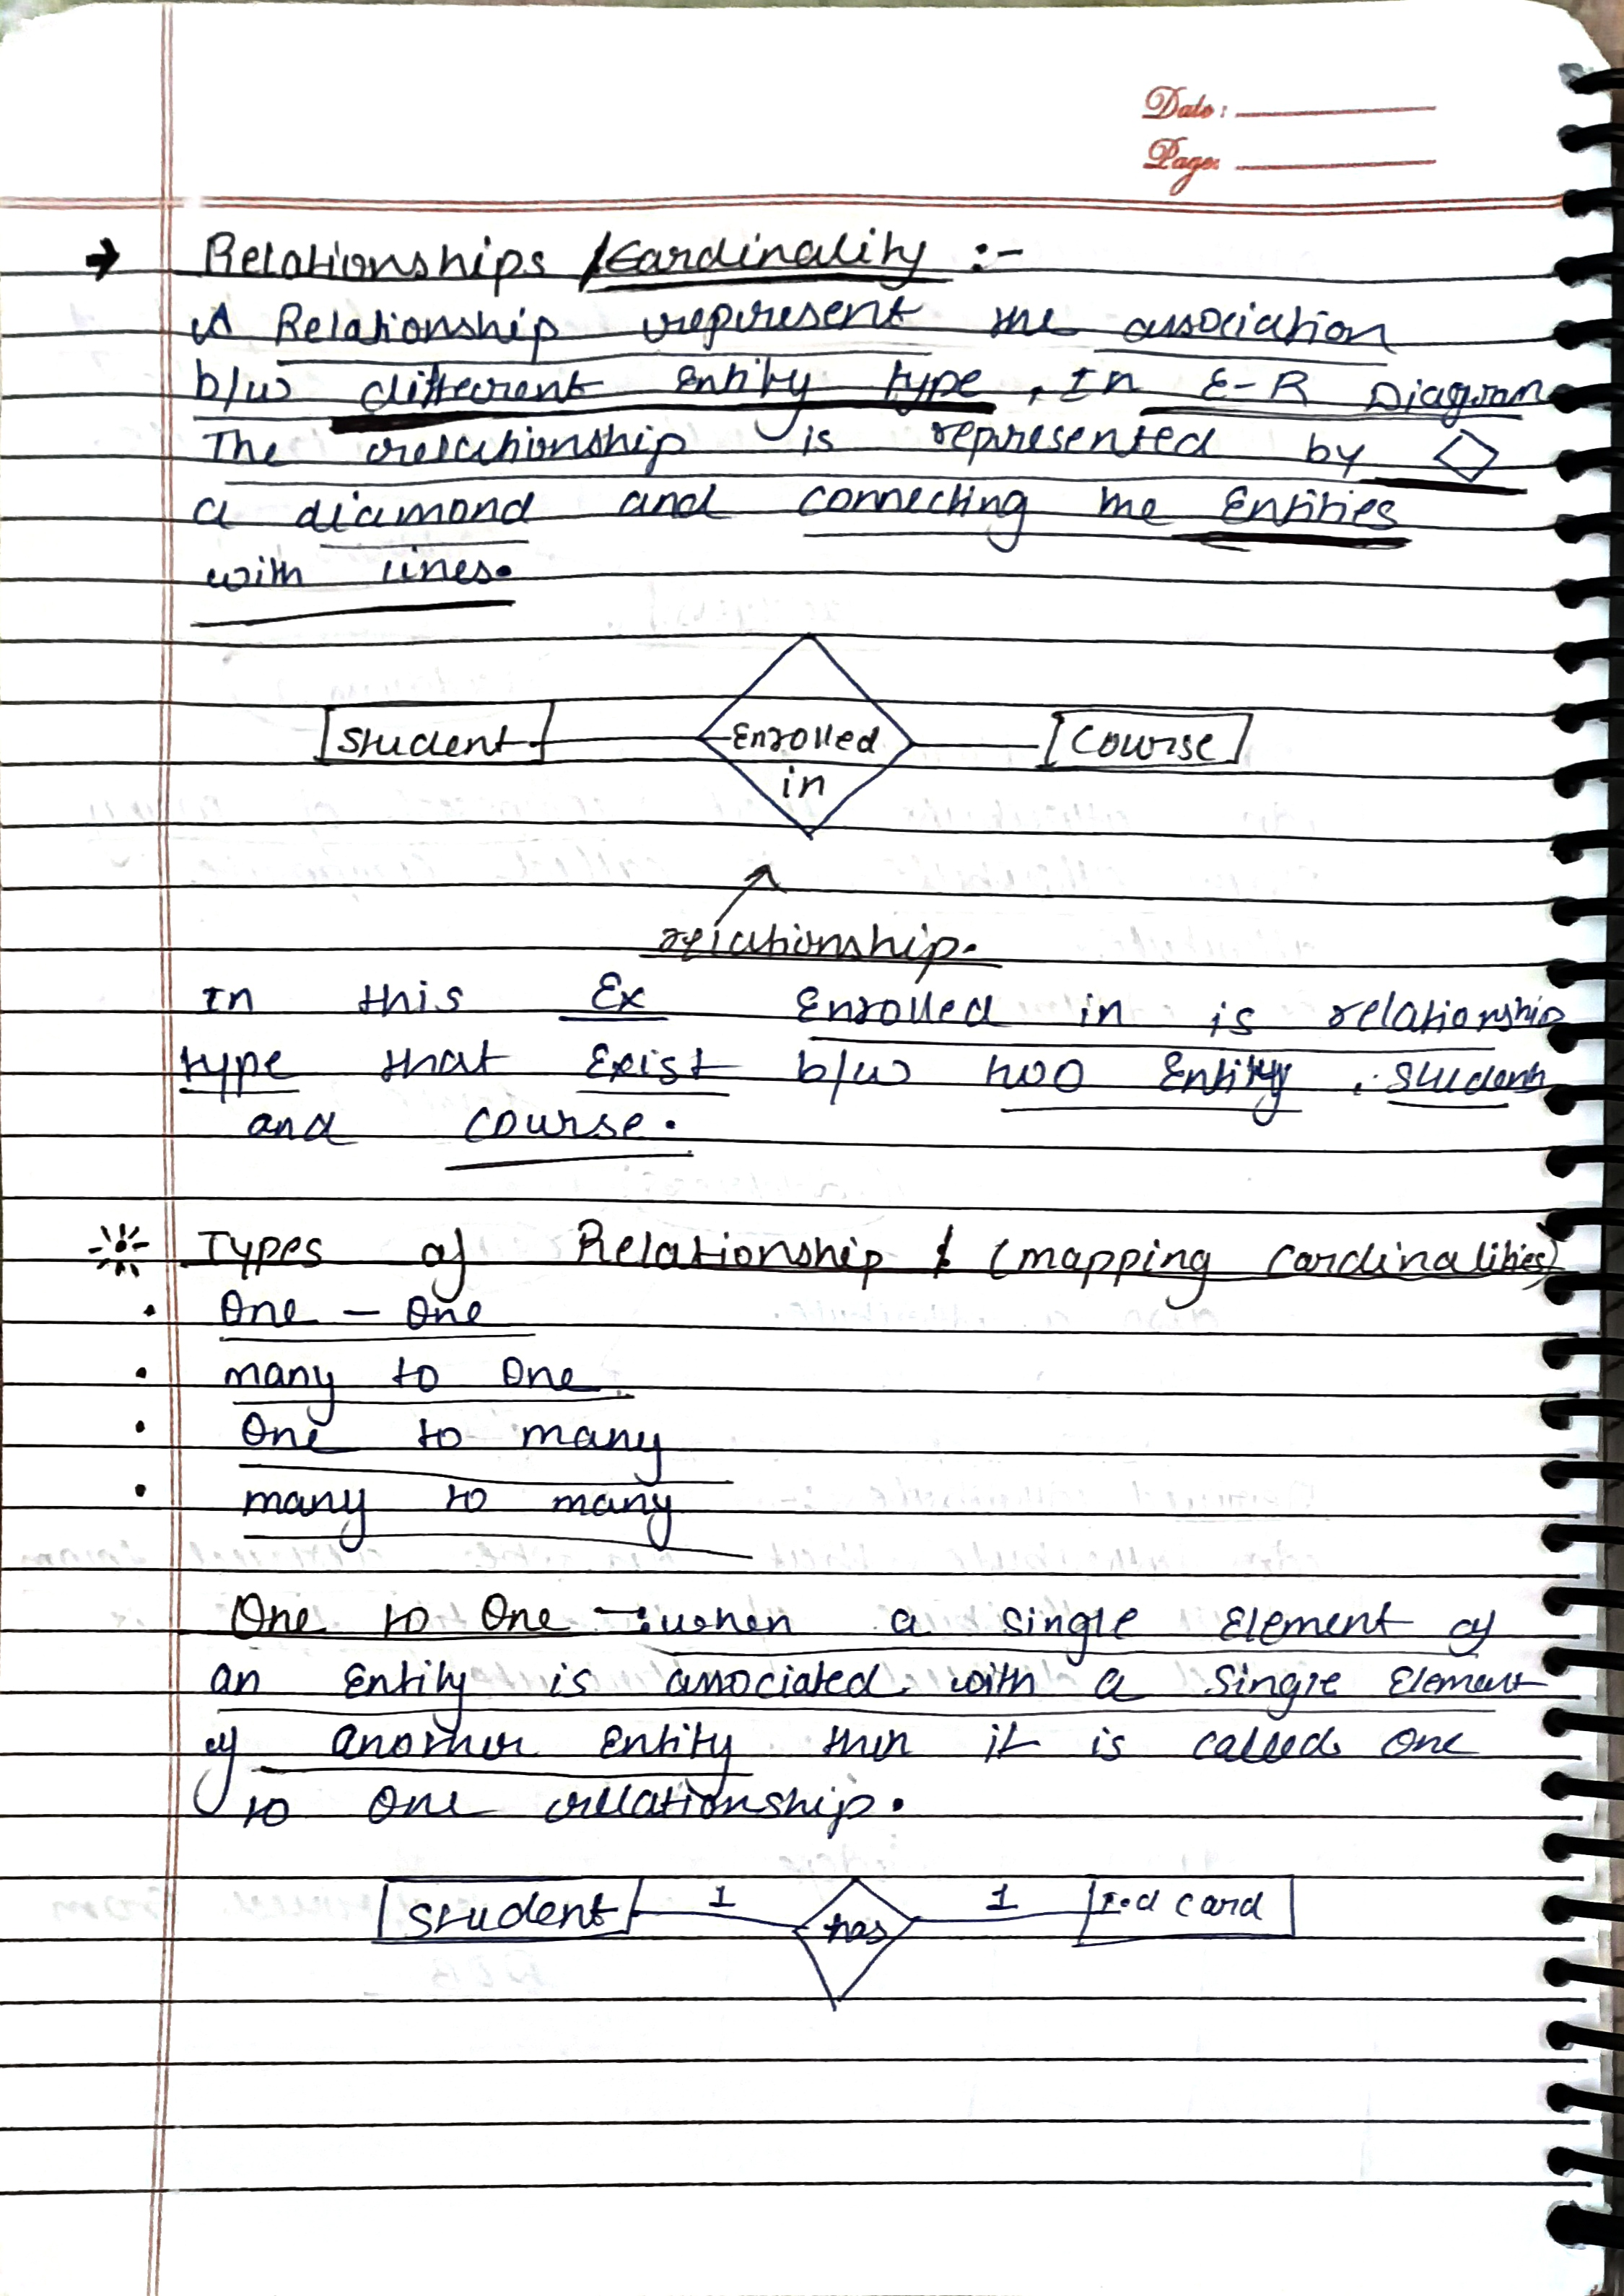 Date:
Page:
→ Relationships / Cardinality :-
A Relationship represent the association
b/w different Entity type, In E-R Diagram
The relationship is represented by ◇
a diamond and connecting the Entities
with lines.
Student Enrolled in Course
relationship.
In this Ex Enrolled in is relationship
type that Exist b/w two Entity, Student
and course.
Types of Relationship & (mapping cardinalities)
• One - One
• many to One
• One to many
• many to many
One to One -: when a single Element of
an Entity is associated with a single Element
of another Entity then it is called One
to One relationship.
Student 1 has 1 I.d card